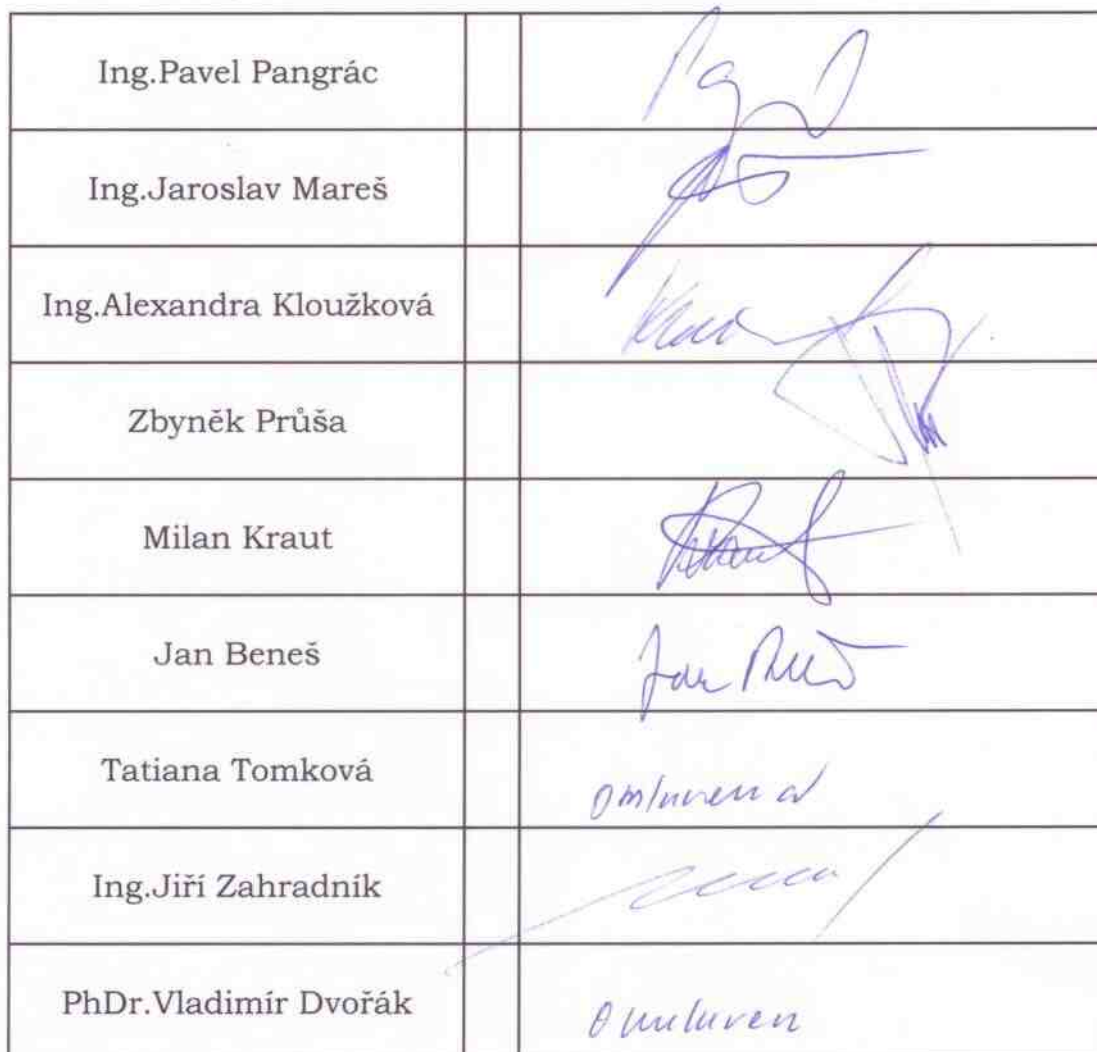 Ing.Pavel Pangrác
Ing.Jaroslav Mareš
Ing.Alexandra Kloužková
Zbyněk Průša
Milan Kraut
Jan Beneš
Tatiana Tomková
omluvena
Ing.Jiří Zahradník
PhDr.Vladimír Dvořák
omluven